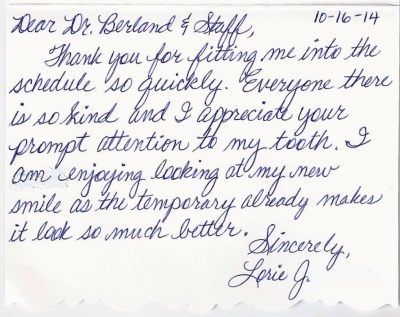 Dear Dr. Berland & Staff, 10-16-14
Thank you for fitting me into the
schedule so quickly. Everyone there
is so kind and I appreciate your
prompt attention to my tooth. I
am enjoying looking at my new
smile as the temporary already makes
it look so much better.
Sincerely,
Lorie J.